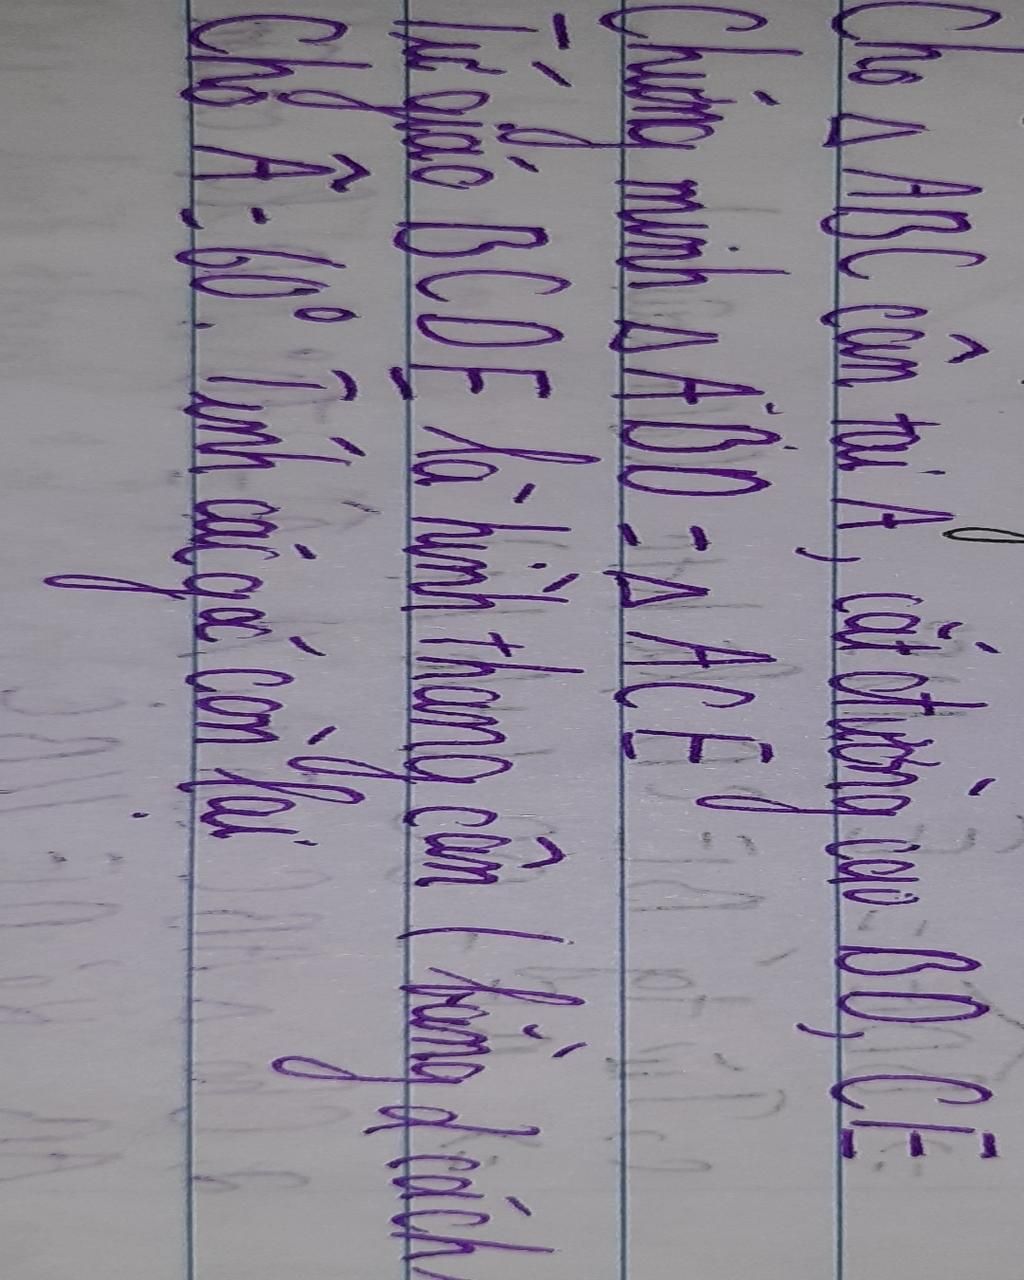 Cho Δ ABC cân tại A, các đường cao BD, CE
Chứng minh Δ ABD = Δ ACE
Tứ giác BCDE là hình thang cân (bằng 2 cách
Cho Â = 60°. Tính các góc còn lại